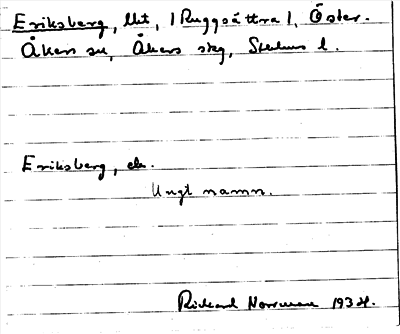 Eriksberg, lht, | Ruggsättra |, Öster-
Åkers sn, Åkers skg, Sthlms l.
Eriksberg, eb.
Ungt namn.
Rickard Norrman 1934.